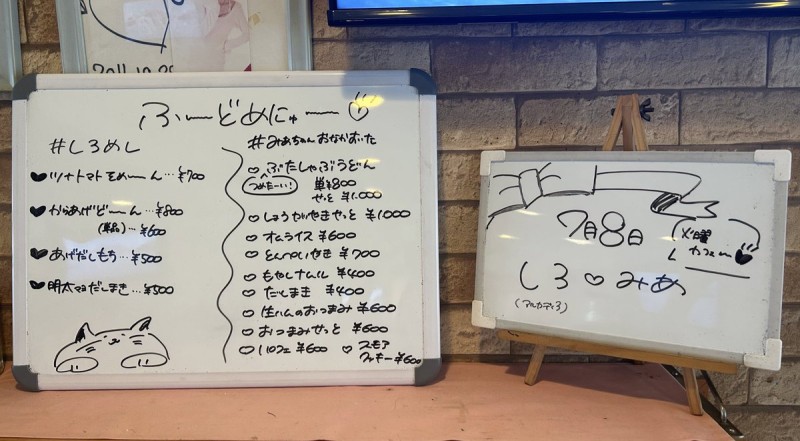 2011.10.28
ふーどめにゅー
#しろめし
ツナトマトそめーん…¥700
からあげどーん…¥800
(単品)…¥600
あげだしもち…¥500
明太マヨだしまき…¥500
#みあちゃんおなかすいた
ぶたしゃぶうどん
つめたーい! 単¥800
せっと ¥1.000
しょうがやきせっと ¥1.000
オムライス ¥600
とんぺいやき ¥700
もやしナムル ¥400
だしまき ¥400
生ハムのおつまみ ¥600
おつまみせっと ¥600
¥600
スモア
クッキー ¥600
7月8日
火曜
しろ♡みあ
(アルカディろ)